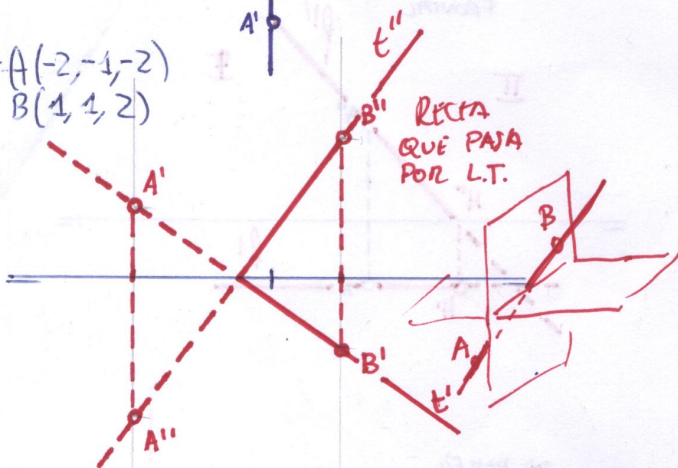 A'
t''
A(-2,-1,-2)
B(1,1,2)
B''
RECTA
QUE PASA
POR L.T.
A'
B
A
B'
t'
A''